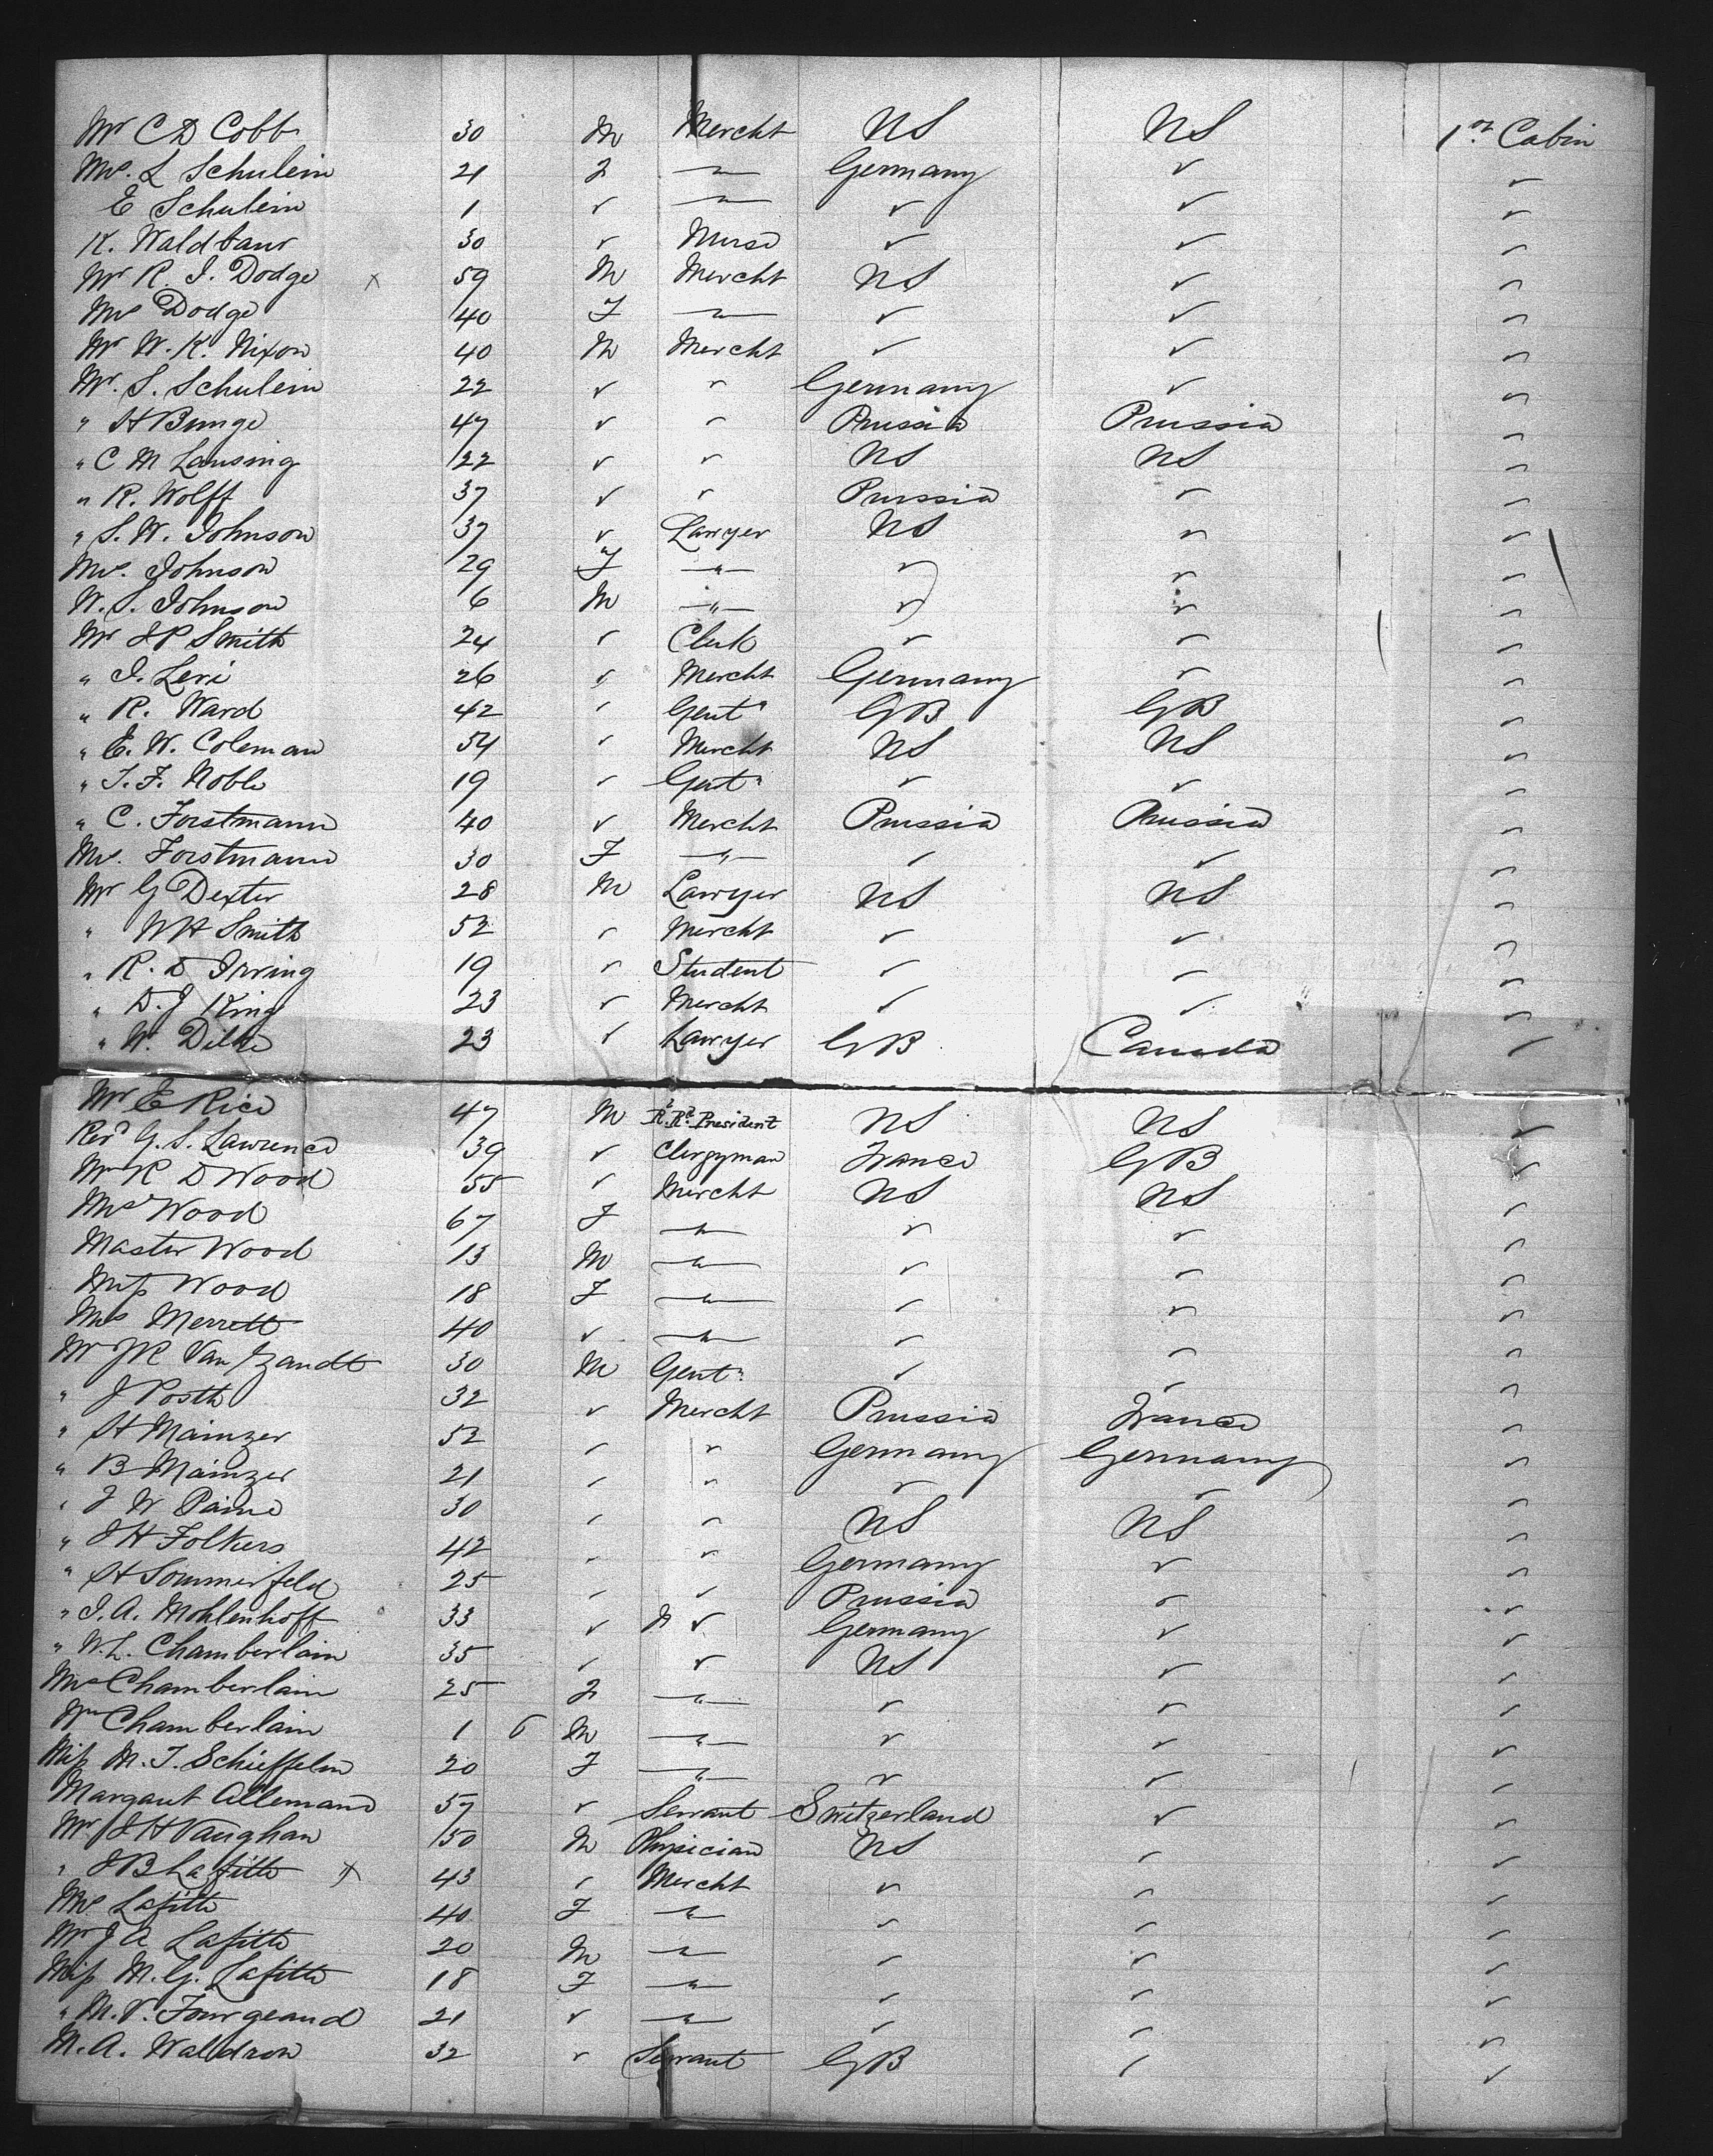 Mr C D Cobb 30 M Mercht US US 1st Cabin
Mrs. L Schulein 21 F " Germany ✓ ✓
E Schulein 1 ✓ " ✓ ✓ ✓
K. Waldbaur 30 ✓ Nurse ✓ ✓ ✓
Mr R. I. Dodge x 59 M Mercht US ✓ ✓
Mrs Dodge 40 F " ✓ ✓ ✓
Mr W. K. Nixon 40 M Mercht ✓ ✓ ✓
Mr. S. Schulein 22 ✓ ✓ Germany ✓ ✓
" H Bunge 47 ✓ ✓ Prussia Prussia ✓
" C M Lansing 22 ✓ ✓ US US ✓
" R. Wolff 37 ✓ ✓ Prussia ✓ ✓
" S. W. Johnson 37 ✓ Lawyer US ✓ ✓
Mrs. Johnson 29 F " ✓ ✓ ✓
W. S. Johnson 6 M " ✓ ✓ ✓
Mr J P Smith 24 ✓ Clerk ✓ ✓ ✓
" I. Levi 26 ✓ Mercht Germany ✓ ✓
" R. Ward 42 ✓ Gentn GB GB ✓
" E. W. Coleman 54 ✓ Mercht US US ✓
" T. F. Noble 19 ✓ Gentn ✓ ✓ ✓
" C. Forstmann 40 ✓ Mercht Prussia Prussia ✓
Mrs. Forstmann 30 F " ✓ ✓ ✓
Mr G Dexter 28 M Lawyer US US ✓
" W H Smith 52 ✓ Mercht ✓ ✓ ✓
" R. D Irving 19 ✓ Student ✓ ✓ ✓
" D. J King 23 ✓ Mercht ✓ ✓ ✓
" W. Dilke 23 ✓ Lawyer GB Canada ✓
Mr E Rice 47 M R. Rd. President US US ✓
Revd G. S. Lawrence 39 ✓ Clergyman France GB ✓
Mr R D Wood 55 ✓ Mercht US US ✓
Mrs Wood 67 F " ✓ ✓ ✓
Master Wood 13 M " ✓ ✓ ✓
Miss Wood 18 F " ✓ ✓ ✓
Mrs Merrett 40 ✓ " ✓ ✓ ✓
Mr J R Van Zandt 30 M Gentn ✓ ✓ ✓
" J Posth 32 ✓ Mercht Prussia France ✓
" H Mainzer 52 ✓ ✓ Germany Germany ✓
" B Mainzer 21 ✓ ✓ ✓ ✓ ✓
" J W Paine 30 ✓ ✓ US US ✓
" J H Folkers 42 ✓ ✓ Germany ✓ ✓
" H Sommerfeld 25 ✓ ✓ Prussia ✓ ✓
" J. A. Mohlenhoff 33 ✓ ✓ Germany ✓ ✓
" W. L. Chamberlain 35 ✓ ✓ US ✓ ✓
Mrs Chamberlain 25 F " ✓ ✓ ✓
Wm Chamberlain 1 6 M " ✓ ✓ ✓
Miss M. T. Schieffelin 20 F " ✓ ✓ ✓
Margaut Allemand 57 ✓ Servant Switzerland ✓ ✓
Mr J H Vaughan 50 M Physician US ✓ ✓
" J B Lafitte x 43 ✓ Mercht ✓ ✓ ✓
Mrs Lafitte 40 F " ✓ ✓ ✓
Mr J A Lafitte 20 M " ✓ ✓ ✓
Miss M. G. Lafitte 18 F " ✓ ✓ ✓
" M. V. Fourgeaud 21 ✓ " ✓ ✓ ✓
M. A. Waldron 32 ✓ Servant GB ✓ ✓